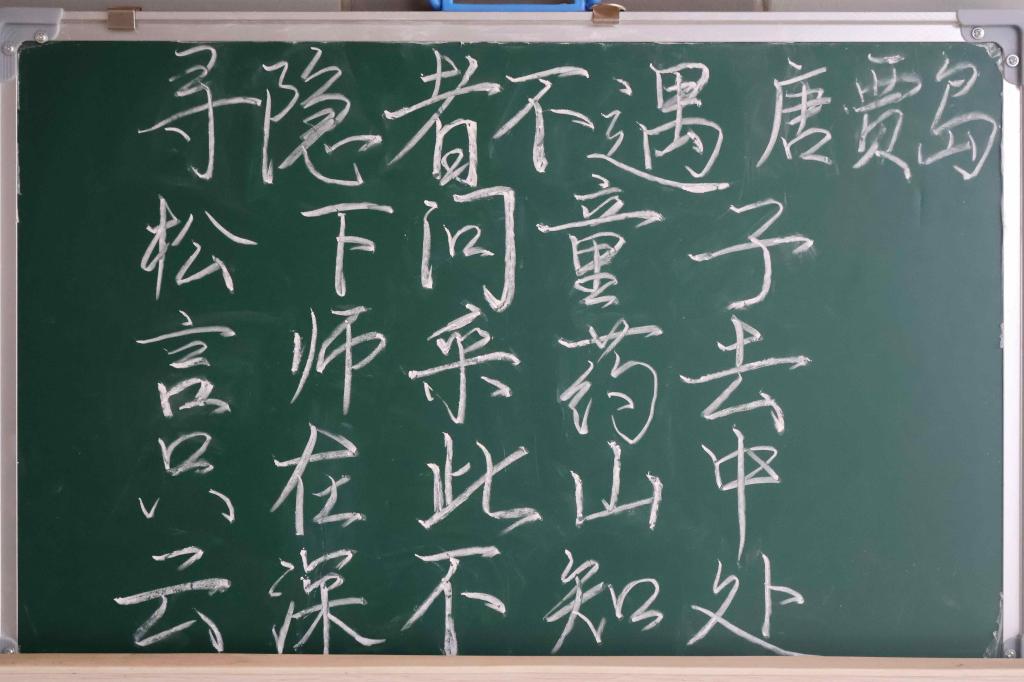 寻隐者不遇 唐 贾岛
松下问童子
言师采药去
只在此山中
云深不知处